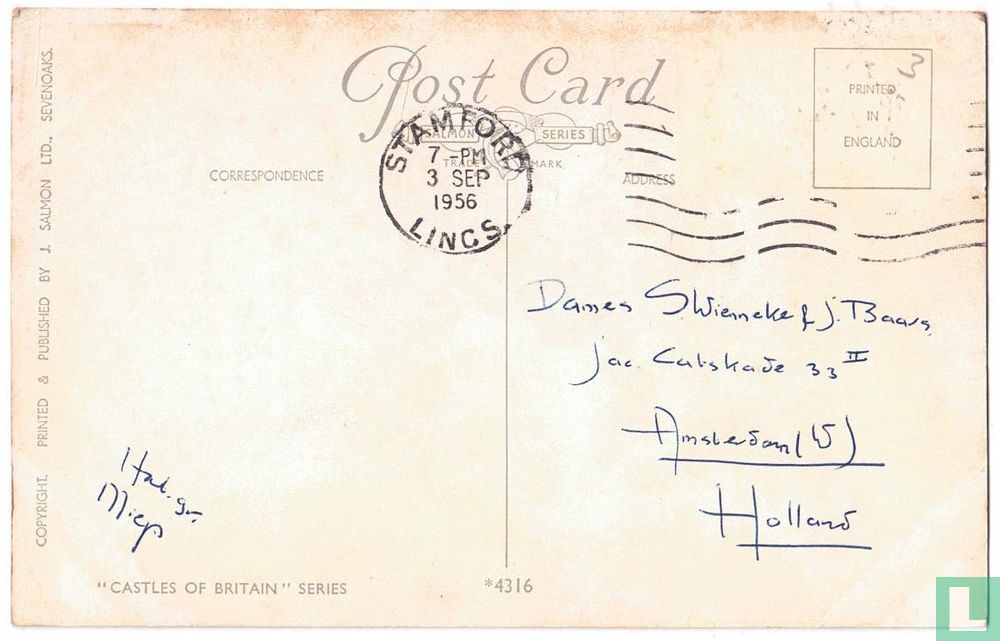 Post Card
SALMON SERIES
TRADE MARK
CORRESPONDENCE
ADDRESS
PRINTED
IN
ENGLAND
3
STAMFORD
7-PM
3 SEP
1956
LINCS.
COPYRIGHT. PRINTED & PUBLISHED BY J. SALMON LTD., SEVENOAKS.
Dames S. Wienneke & J. Baars
Jac. Catskade 33 II
Amsterdam (W)
Holland
Hart. gr.
Miep
"CASTLES OF BRITAIN" SERIES
*4316
L